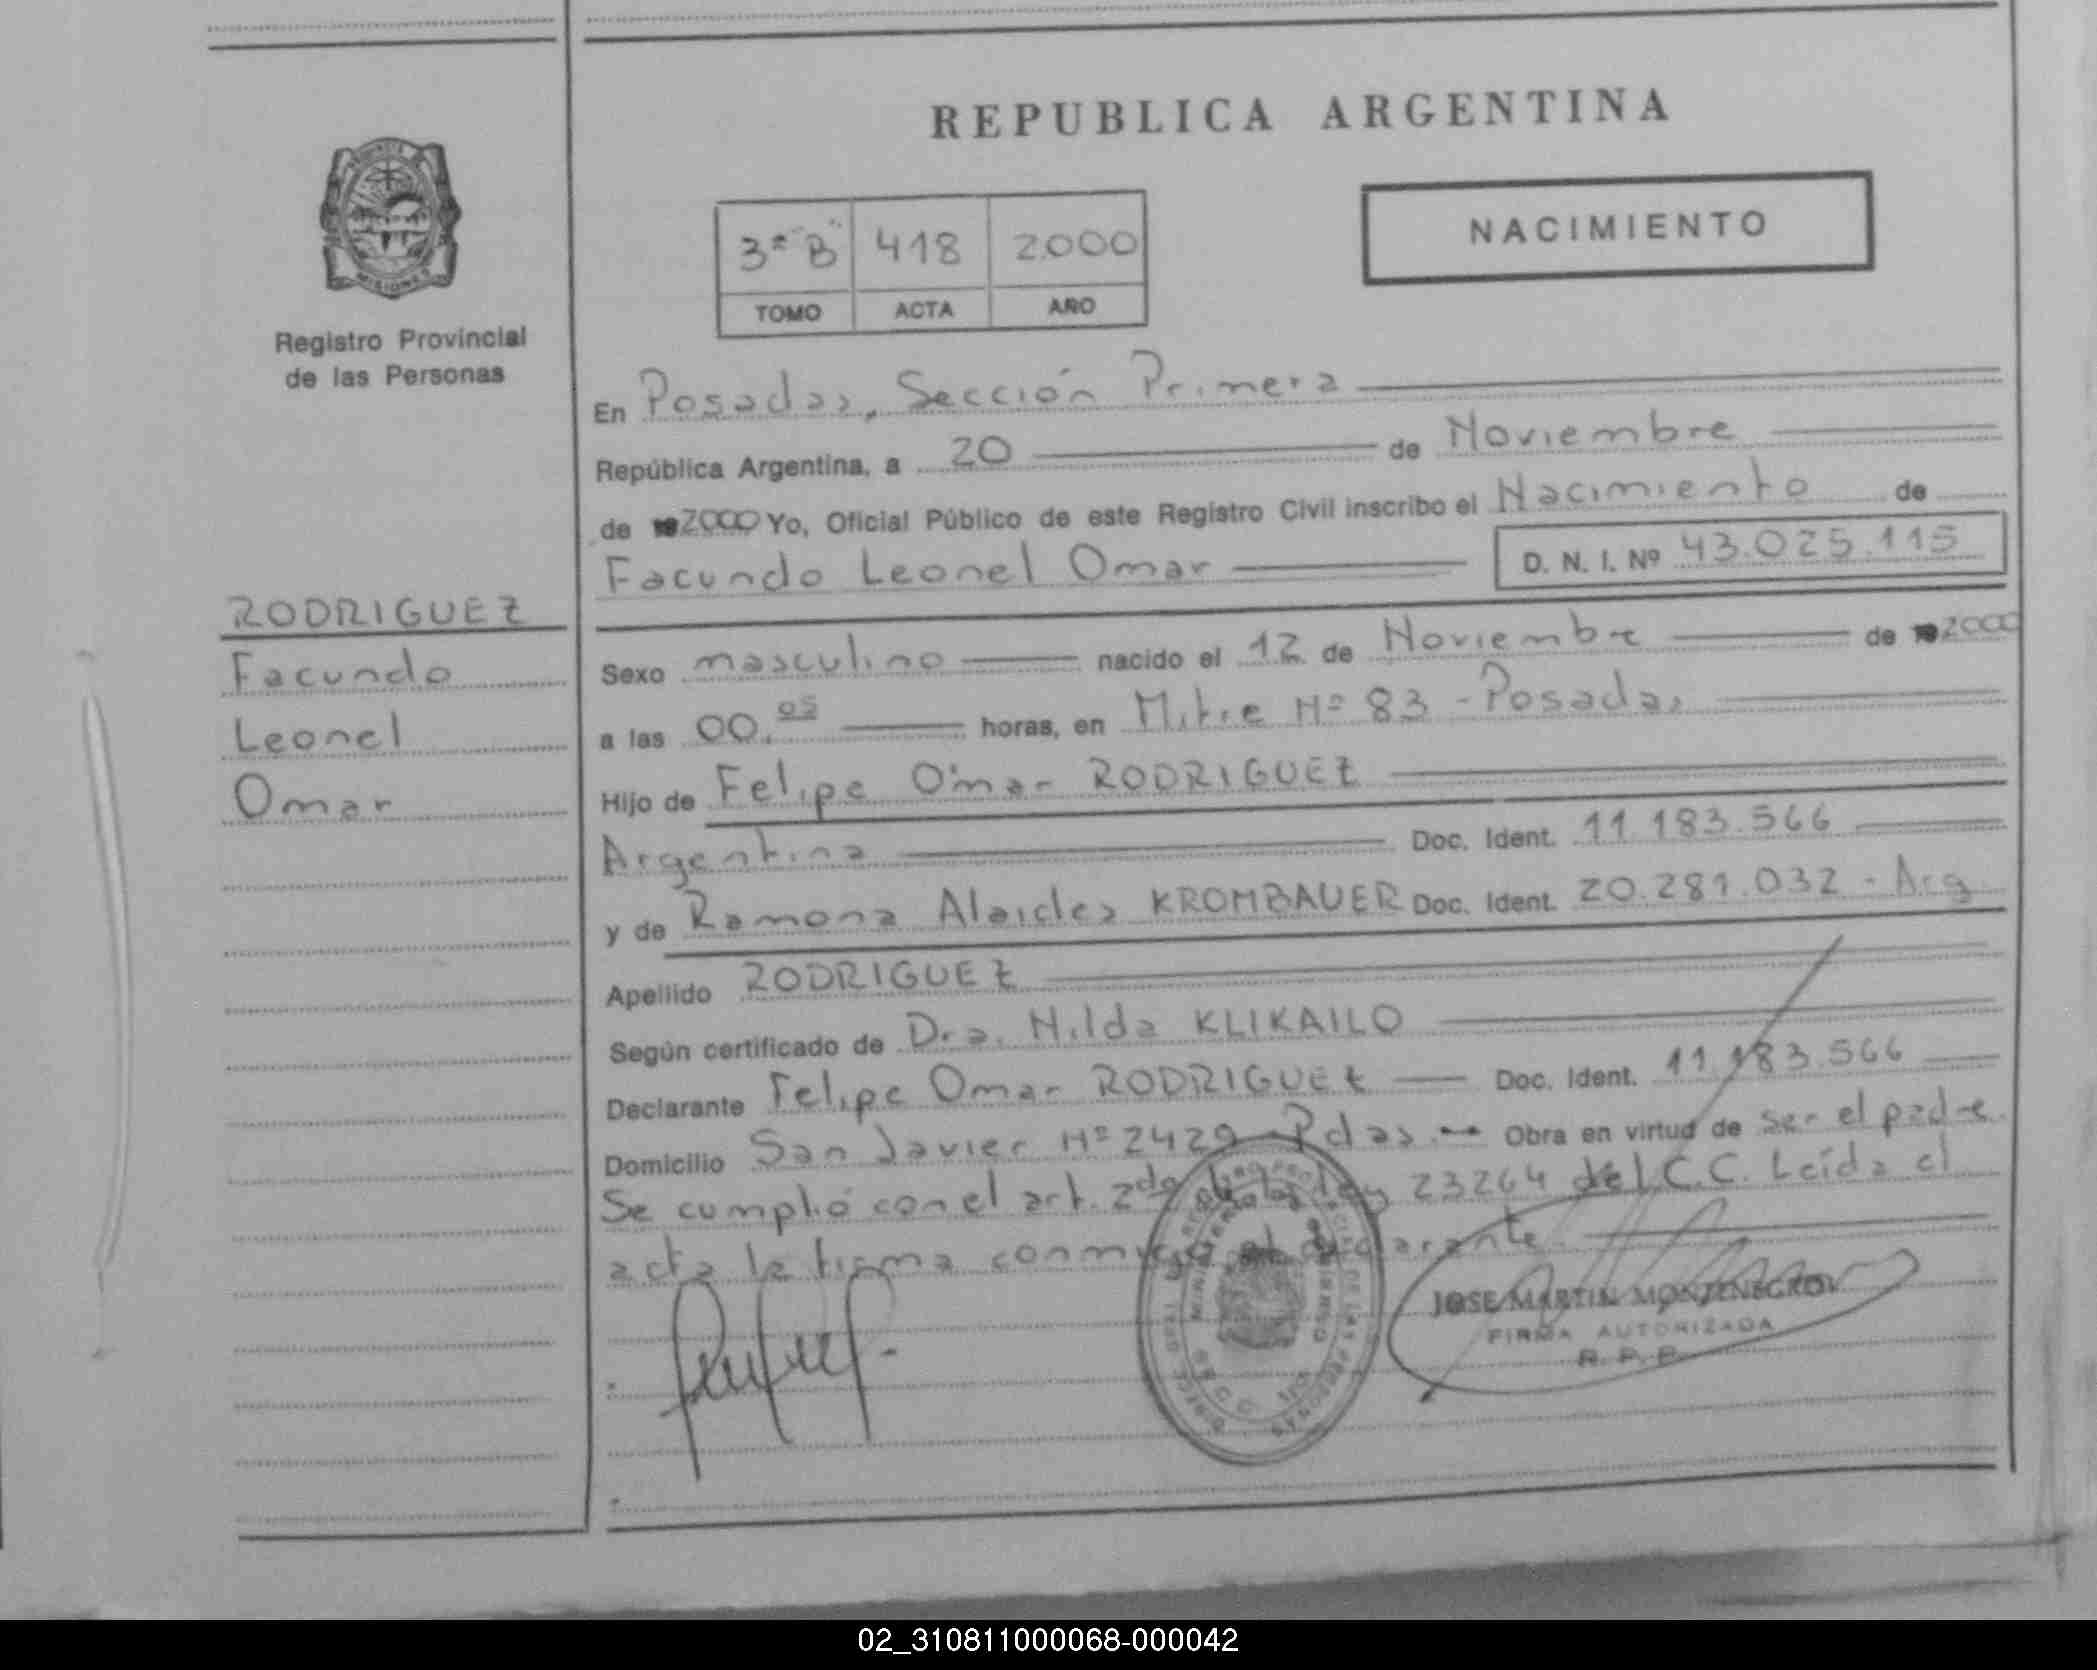 REPUBLICA ARGENTINA
MISIONES
Registro Provincial
de las Personas
3º "B" 418 2000
TOMO ACTA AÑO
NACIMIENTO
En Posadas, Sección Primera
República Argentina, a 20 de Noviembre
de 19 2000 Yo, Oficial Público de este Registro Civil inscribo el Nacimiento de
Facundo Leonel Omar D. N. I. Nº 43.025.115
RODRIGUEZ
Facundo
Leonel
Omar
Sexo masculino nacido el 12 de Noviembre de 19 2000
a las 00.05 horas, en Mitre Nº 83 - Posadas
Hijo de Felipe Omar RODRIGUEZ
Argentina Doc. Ident. 11.183.566
y de Ramona Alaides KROMBAUER Doc. Ident. 20.281.032 - Arg
Apellido RODRIGUEZ
Según certificado de Dra. Hilda KLIKAILO
Declarante Felipe Omar RODRIGUEZ Doc. Ident. 11.183.566
Domicilio San Javier Nº 2429 - Pdas. Obra en virtud de ser el padre.
Se cumplió con el art. 2do de la ley 23264 del C.C. Leída el
acta la firma conmigo el declarante.
JOSE MARTIN MONTENEGRO
FIRMA AUTORIZADA
R. P. P.
02_310811000068-000042